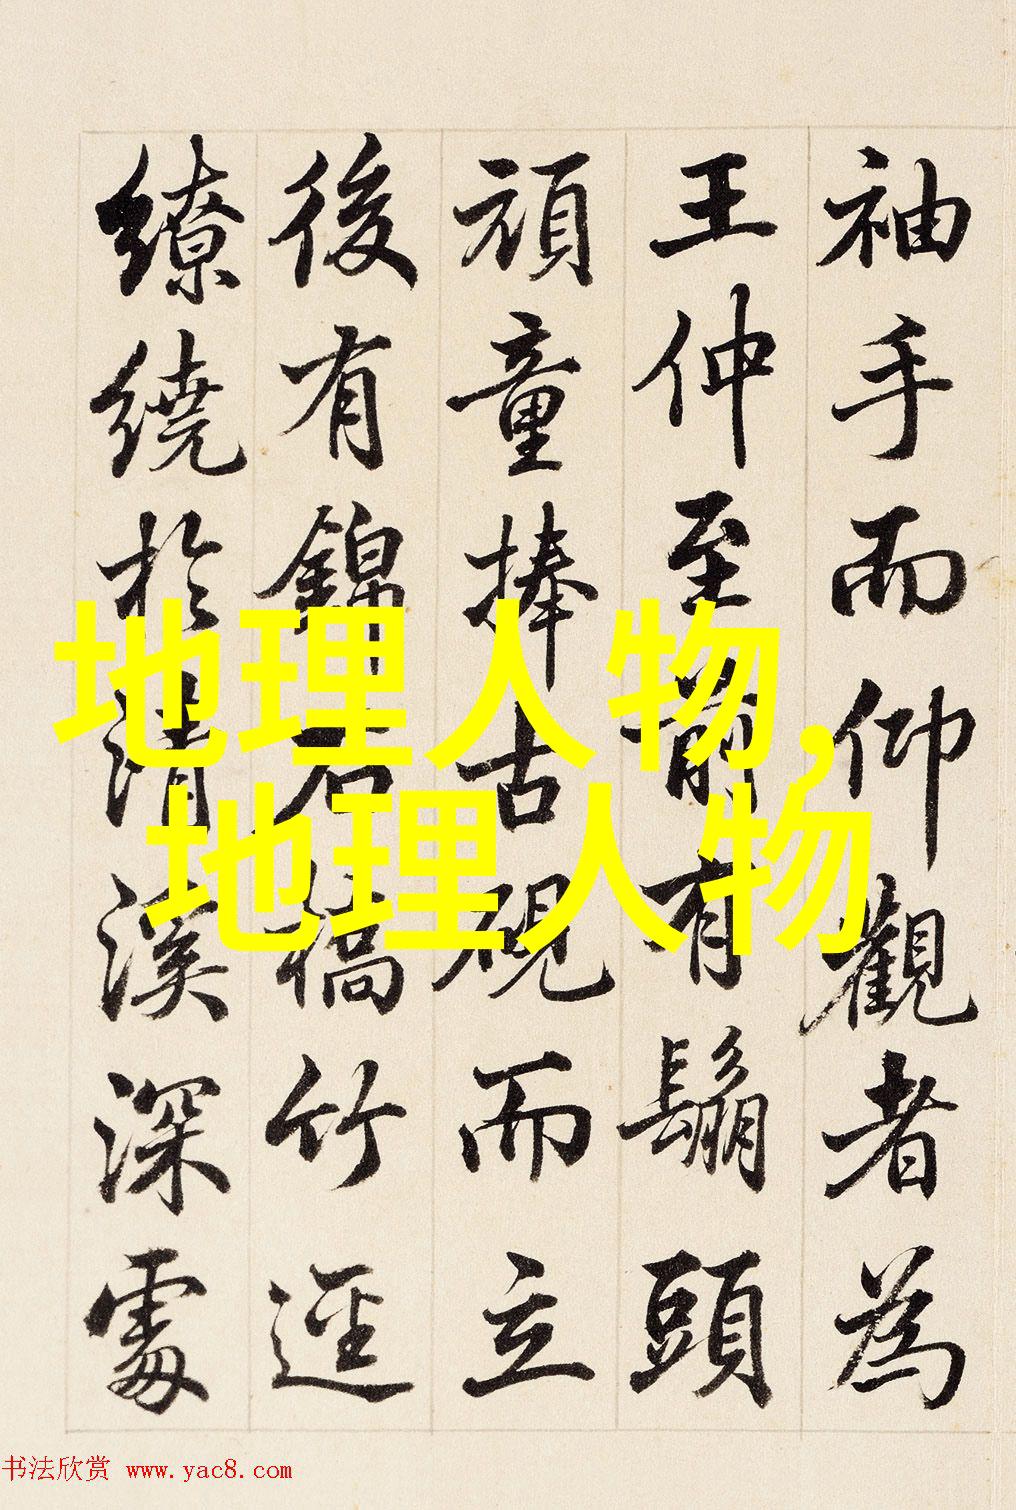 袖手而仰觀者為
王仲至前有鬅頭
頑童捧古硯而立
後有錦石橋竹逕
繚繞於清溪深處
地理人物,
地理人物
书法欣赏 www.yac8.com